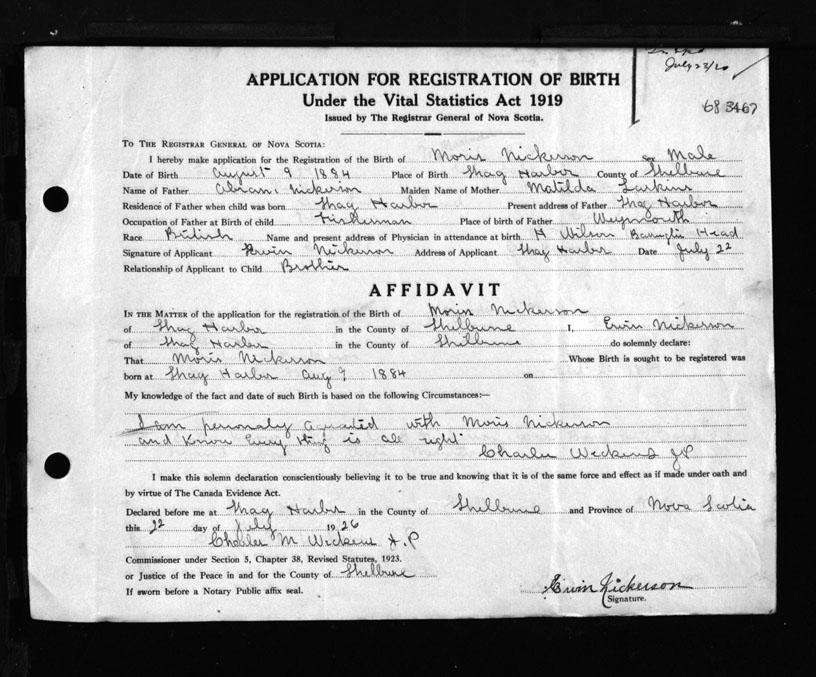 July 23/26
68 3467
APPLICATION FOR REGISTRATION OF BIRTH
Under the Vital Statistics Act 1919
Issued by The Registrar General of Nova Scotia.
TO THE REGISTRAR GENERAL OF NOVA SCOTIA:
I hereby make application for the Registration of the Birth of Moris Nickerson sex Male
Date of Birth August 9 1884 Place of Birth Shag Harbor County of Shelburne
Name of Father Nickerson Maiden Name of Mother Matilda Larkins
Residence of Father when child was born Shag Harbor Present address of Father Shag Harbor
Occupation of Father at Birth of child Fisherman Place of birth of Father Weymouth
Race British Name and present address of Physician in attendance at birth H Wilson Head
Signature of Applicant Erwin Nickerson Address of Applicant Shag Harbor Date July 22
Relationship of Applicant to Child Brother
AFFIDAVIT
IN THE MATTER of the application for the registration of the Birth of Moris Nickerson
of Shag Harbor in the County of Shelburne I, Erwin Nickerson
of Shag Harbor in the County of Shelburne do solemnly declare:
That Moris Nickerson Whose Birth is sought to be registered was
born at Shag Harbor Aug 9 1884 on
My knowledge of the fact and date of such Birth is based on the following Circumstances:—
I am personaly with Moris Nickerson
and Know Every thing is all right
Charles JP
I make this solemn declaration conscientiously believing it to be true and knowing that it is of the same force and effect as if made under oath and
by virtue of The Canada Evidence Act.
Declared before me at Shag Harbor in the County of Shelburne and Province of Nova Scotia
this 22 day of July 1926
Charles M
Commissioner under Section 5, Chapter 38, Revised Statutes, 1923.
or Justice of the Peace in and for the County of Shelburne
If sworn before a Notary Public affix seal.
Erwin Nickerson
Signature.